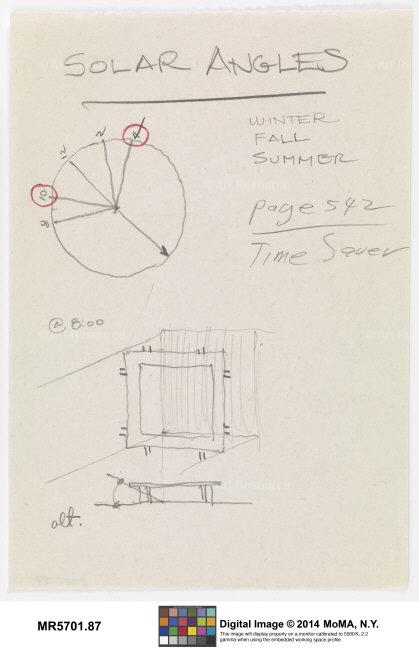 SOLAR ANGLES
WINTER
FALL
SUMMER
page 542
Time Saver
4
2
12
10
8
@ 8:00
alt.
MR5701.87
Digital Image © 2014 MoMA, N.Y.
This image will display properly on a monitor calibrated to 5500K, 2.2
gamma when using the embedded working space profile.